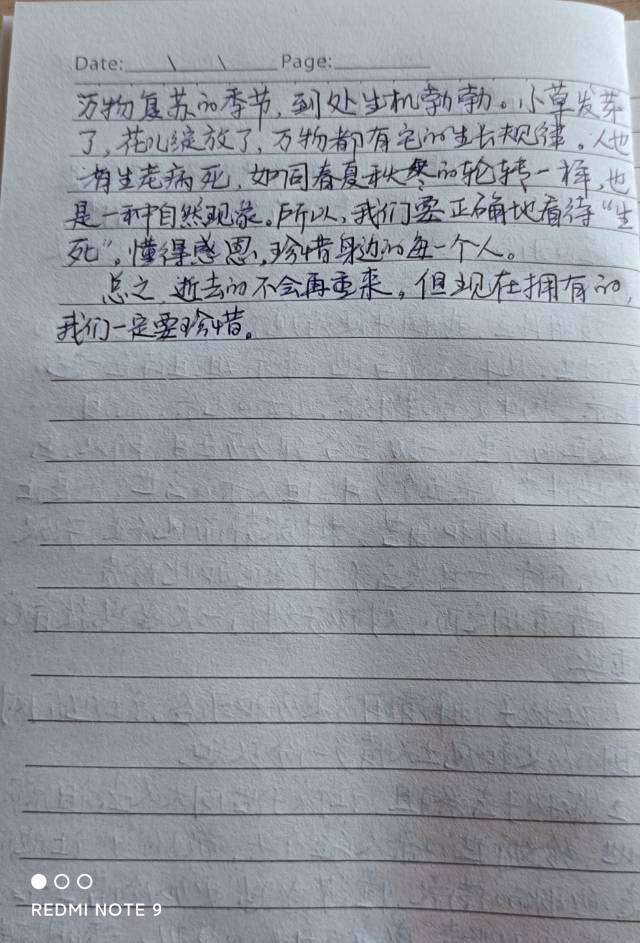 Date: \ \ Page:
万物复苏的季节,到处生机勃勃。小草发芽
了,花儿绽放了,万物都有它的生长规律。人也
有生老病死,如同春夏秋冬的轮转一样,也
是一种自然现象。所以,我们要正确地看待“生
死”,懂得感恩,珍惜身边的每一个人。
总之,逝去的不会再重来,但现在拥有的,
我们一定要珍惜。
REDMI NOTE 9